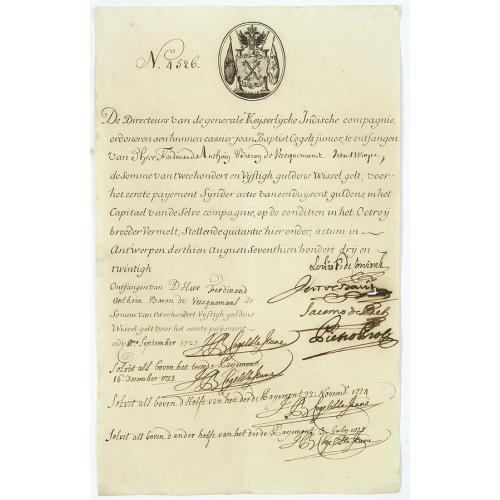 N. 4526.
De Directeurs van de generale Keyserlycke Indische compagnie,
ordoneren aen hunnen cassier joan Baptist Cogels junior, te ontfangen
van Dheer Ferdinande Anthoin Baron de Vecquemans van twerpen
de somme van twee hondert en Vijftigh guldens Wissel gelt, voor
het eerste payement Synder actie van een duysent guldens in het
Capitael van de Selve compagnie, op de condition in het Octroij
breeder Vermelt, Stellende quitantie hier onder, actum in
Antwerpen derthien Augusti Seventhien hondert drij en
twintigh
Ontfangen van D Heer Ferdinand
Anthoin Baron de Vecquemans de
Somme van twee hondert Vijftigh guldens
Wissel gelt voor het eerste payement
September 1723 JB Cogels le Jeune
Solvit als boven het tweede Payement
16 december 1723 JB Cogels le Jeune
Solvit als boven d Helft van het derde Payement 22 Novemb 1724
JB Cogels le Jeune
Solvit als boven d ander helft van het derde Payement July 1725
JB Cogels le Jeune
Louis F. de Coninck
Jacomo de Pret
Pietro Proli